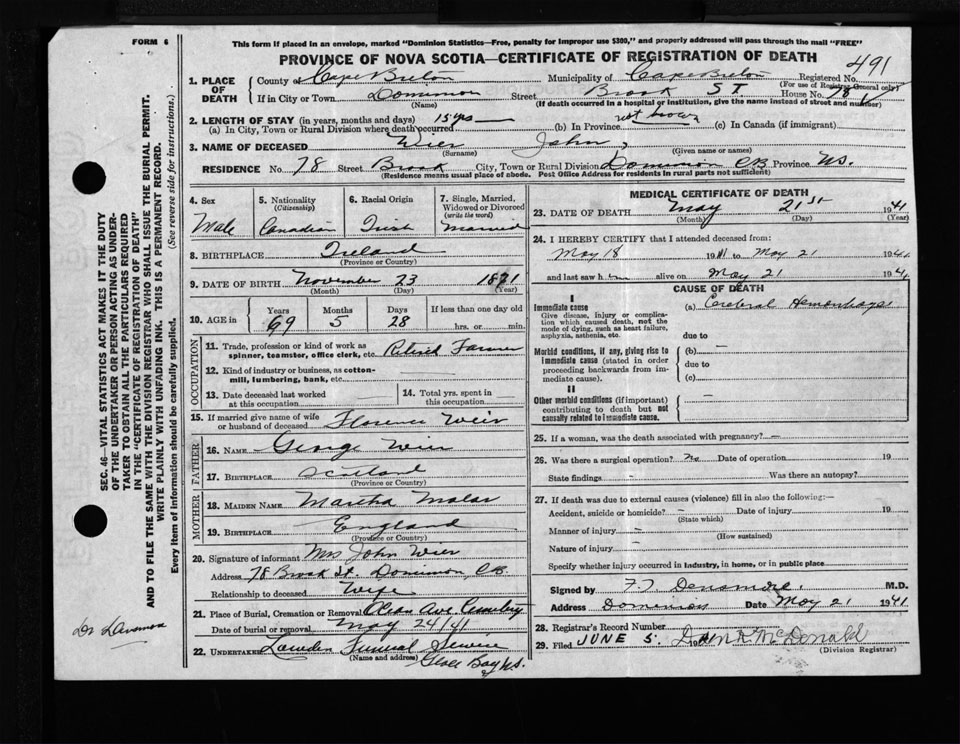 FORM 6
This form if placed in an envelope, marked "Dominion Statistics—Free, penalty for improper use $300," and properly addressed will pass through the mail "FREE"
PROVINCE OF NOVA SCOTIA—CERTIFICATE OF REGISTRATION OF DEATH
491
1. PLACE OF DEATH County of Cape Breton Municipality of Cape Breton Registered No.
(For use of Registrar General only)
If in City or Town Dominion Street Brook ST House No. 78
(Name) (If death occurred in a hospital or institution, give the name instead of street and number)
2. LENGTH OF STAY (in years, months and days)
(a) In City, Town or Rural Division where death occurred 15 yrs (b) In Province not known (c) In Canada (if immigrant)
3. NAME OF DECEASED Wier John
(Surname) (Given name or names)
RESIDENCE No. 78 Street Brook City, Town or Rural Division Dominion CB Province NS.
(Residence means usual place of abode. Post Office Address for residents in rural parts not sufficient)
4. Sex Male
5. Nationality (Citizenship) Canadian
6. Racial Origin Irish
7. Single, Married, Widowed or Divorced (write the word) Married
8. BIRTHPLACE Ireland
(Province or Country)
9. DATE OF BIRTH November 23 1871
(Month) (Day) (Year)
10. AGE in Years 69 Months 5 Days 28 If less than one day old hrs. or min.
OCCUPATION
11. Trade, profession or kind of work as spinner, teamster, office clerk, etc. Retired Farmer
12. Kind of industry or business, as cotton-mill, lumbering, bank, etc.
13. Date deceased last worked at this occupation
14. Total yrs. spent in this occupation
15. If married give name of wife or husband of deceased Florence Weir
FATHER
16. NAME George Wier
17. BIRTHPLACE Scotland
(Province or Country)
MOTHER
18. MAIDEN NAME Martha
19. BIRTHPLACE England
(Province or Country)
20. Signature of informant Mrs John Wier
Address 78 Brook St. Dominion, CB.
Relationship to deceased Wife
21. Place of Burial, Cremation or Removal Ocean Ave Cemetery
Date of burial or removal May 24/41
22. UNDERTAKER Funeral Service
(Name and address) Glace Bay NS.
MEDICAL CERTIFICATE OF DEATH
23. DATE OF DEATH May 21st 1941
(Month) (Day) (Year)
24. I HEREBY CERTIFY that I attended deceased from:
May 18 1941 to May 21 1941
and last saw him alive on May 21 1941
CAUSE OF DEATH
I
Immediate cause (a) Cerebral Hemorrhage
Give disease, injury or complication which caused death, not the mode of dying, such as heart failure, asphyxia, asthenia, etc. due to
Morbid conditions, if any, giving rise to immediate cause (stated in order proceeding backwards from immediate cause). (b) —
due to
(c)
II
Other morbid conditions (if important) contributing to death but not causally related to immediate cause.
25. If a woman, was the death associated with pregnancy? —
26. Was there a surgical operation? No Date of operation 19
State findings Was there an autopsy?
27. If death was due to external causes (violence) fill in also the following:—
Accident, suicide or homicide? – Date of injury 19
(State which)
Manner of injury –
(How sustained)
Nature of injury –
Specify whether injury occurred in industry, in home, or in public place
Signed by M.D.
Address Dominion Date May 21 1941
28. Registrar's Record Number
29. Filed JUNE 5. Dan R McDonald
(Division Registrar)
SEC. 46—VITAL STATISTICS ACT MAKES IT THE DUTY
OF THE UNDERTAKER OR PERSON ACTING AS UNDER-
TAKER TO OBTAIN ALL THE PARTICULARS REQUIRED
IN THE "CERTIFICATE OF REGISTRATION OF DEATH"
AND TO FILE THE SAME WITH THE DIVISION REGISTRAR WHO SHALL ISSUE THE BURIAL PERMIT.
WRITE PLAINLY WITH UNFADING INK. THIS IS A PERMANENT RECORD.
Every item of information should be carefully supplied. (See reverse side for instructions.)